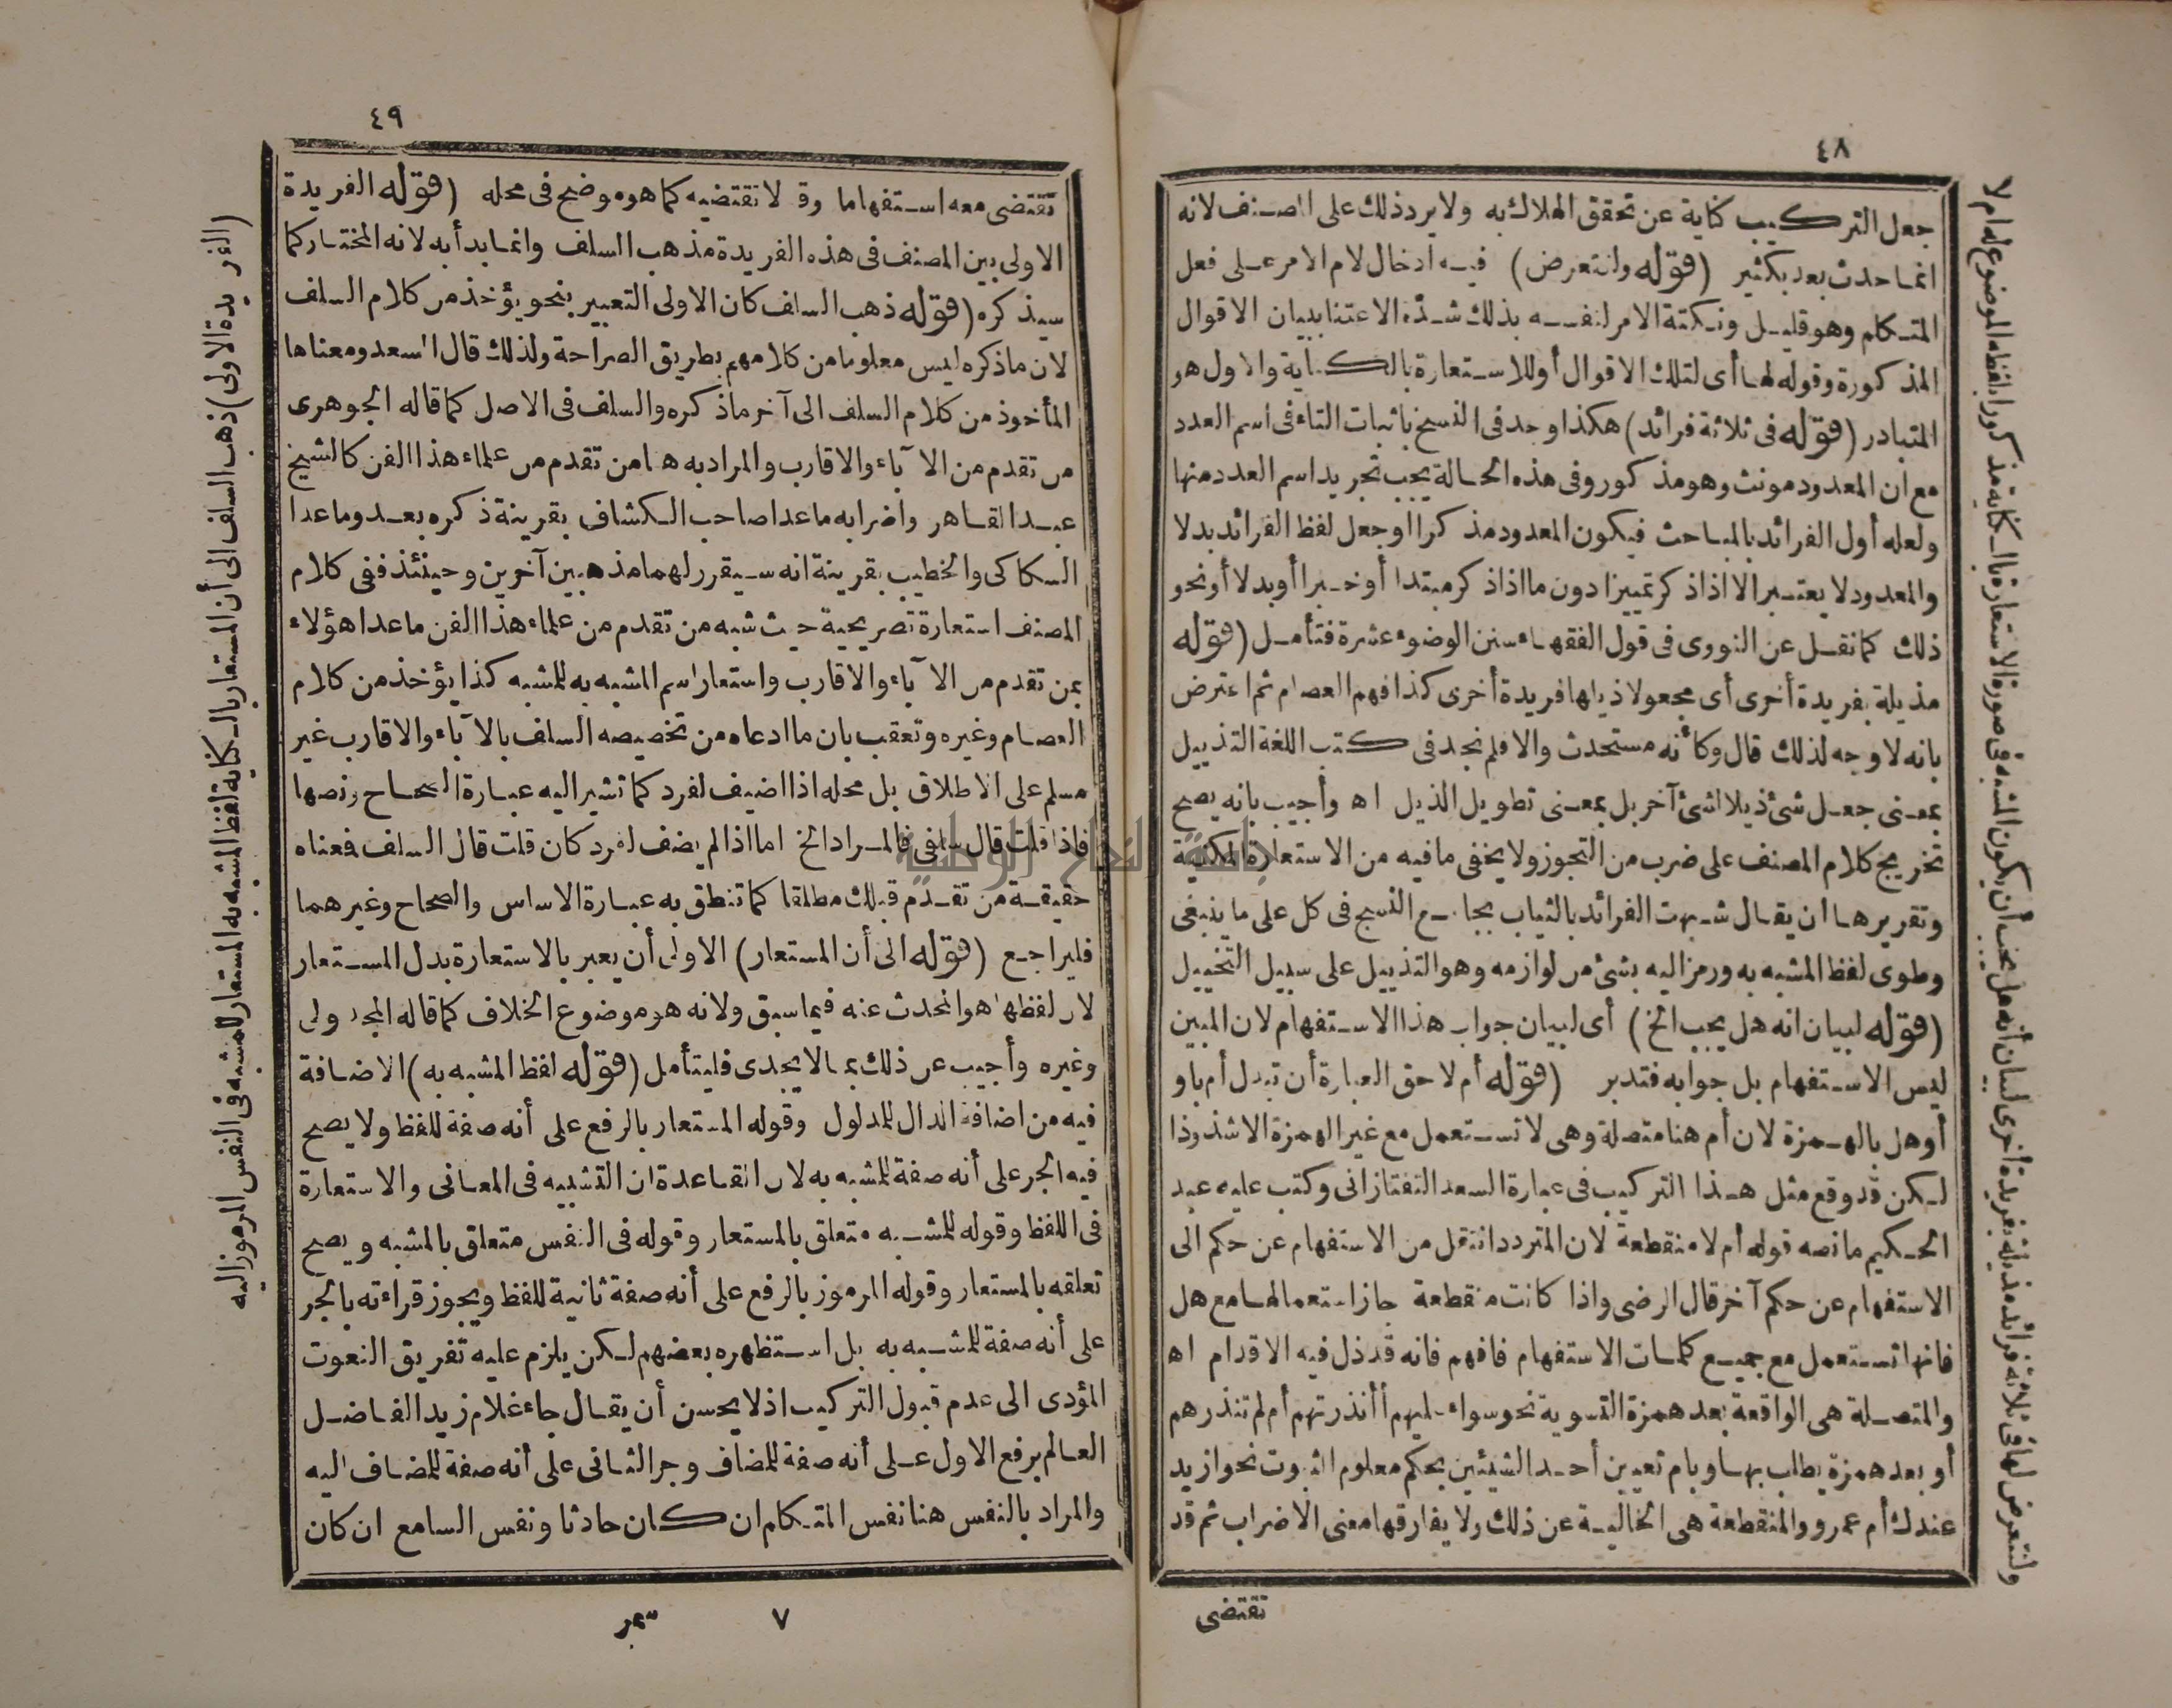 ٤٨
جعل التركيب كناية عن تحقق الهلاك به ولا يرد ذلك على المصنف لانه
انما حدث بعد بكثير (قوله ولنتعرض) فيه ادخال لام الامر على فعل
المتكلم وهو قليل ونكتة الامر لنفسه بذلك شدة الاعتنا ببيان الاقوال
المذكورة وقوله لها أى لتلك الاقوال أو للاستعارة بالكناية والاول هو
المتبادر (قوله فى ثلاثة فرائد) هكذا وجد فى النسخ باثبات التاء فى اسم العدد
مع ان المعدود مونث وهو مذكور وفى هذه الحالة يجب تجريد اسم العدد منها
ولعله أول الفرائد بالمباحث فيكون المعدود مذكرا او جعل لفظ الفرائد بدلا
والمعدود لا يعتبر الا اذا ذكر تمييزا دون ما اذا ذكر مبتدا أو خبرا أو بدلا أو نحو
ذلك كما نقل عن النووى فى قول الفقهاء سنن الوضوء عشرة فتأمل (قوله
مذيلة بفريدة أخرى أى مجعولا ذيلها فريدة أخرى كذا فهم العصام ثم اعترض
بانه لا وجه لذلك قال وكأنه مستحدث والا فلم نجد فى كتب اللغة التذييل
بمعنى جعل شئ ذيلا لشئ آخر بل بمعنى تطويل الذيل اه وأجيب بانه يصح
تخريج كلام المصنف على ضرب من التجوز ولا يخفى ما فيه من الاستعارة المكنية
وتقريرها ان يقال شبهت الفرائد بالثياب بجامع النسج فى كل على ما ينبغى
وطوى لفظ المشبه به ورمز اليه بشئ من لوازمه وهو التذييل على سبيل التخييل
(قوله لبيان انه هل يجب الخ) أى لبيان جواب هذا الاستفهام لان المبين
ليس الاستفهام بل جوابه فتدبر (قوله أم لا حق العبارة أن تبدل أم باو
أو هل بالهمزة لان أم هنا متصلة وهى لا تستعمل مع غير الهمزة الا شذوذا
لكن قد وقع مثل هذا التركيب فى عبارة السعد التفتازانى وكتب عليه عبد
الحكيم ما نصه قوله أم لا منقطعة لان المتردد انتقل من الاستفهام عن حكم الى
الاستفهام عن حكم آخر قال الرضى واذا كانت منقطعة جاز استعمالها مع هل
فانها تستعمل مع جميع كلمات الاستفهام فافهم فانه قد ذل فيه الاقدام اه
والمتصلة هى الواقعة بعد همزة التسوية نحو سواء عليهم أأنذرتهم أم لم تنذرهم
أو بعد همزة يطلب بها وبام تعيين أحد الشيئين بحكم معلوم الثبوت نحو ازيد
عندك أم عمرو والمنقطعة هى الخالية عن ذلك ولا يفارقها معنى الاضراب ثم قد
تقتضى
ولنتعرض لها فى ثلاثة فرائد مذيلة بفريدة أخرى لبيان أنه هل يجب أن يكون المشبه فى صورة الاستعارة بالكناية مذكورا بلفظه الموضوع له ام لا
٤٩
تقتضى معه استفهاما وقد لا تقتضيه كما هو موضح فى محله (قوله الفريدة
الاولى بين المصنف فى هذه الفريدة مذهب السلف وانما بدأ به لانه المختار كما
سيذكره (قوله ذهب السلف كان الاولى التعبير بنحو يؤخذ من كلام السلف
لان ما ذكره ليس معلوما من كلامهم بطريق الصراحة ولذلك قال السعد ومعناها
المأخوذ من كلام السلف الى آخر ما ذكره والسلف فى الاصل كما قاله الجوهرى
من تقدم من الآباء والاقارب والمراد به هنا من تقدم من علماء هذا الفن كالشيخ
عبد القاهر واضرابه ما عدا صاحب الكشاف بقرينة ذكره بعد وما عدا
السكاكى والخطيب بقرينة انه سيقرر لهما مذهبين آخرين وحينئذ ففى كلام
المصنف استعارة تصريحية حيث شبه من تقدم من علماء هذا الفن ما عدا هؤلاء
بمن تقدم من الآباء والاقارب واستعار اسم المشبه به للمشبه كذا يؤخذ من كلام
العصام وغيره وتعقب بان ما ادعاه من تخصيصه السلف بالآباء والاقارب غير
مسلم على الاطلاق بل محله اذا اضيف لفرد كما تشير اليه عبارة الصحاح ونصها
فاذا قلت قال سلفى فالمراد الخ اما اذا لم يضف لفرد كان قلت قال السلف فمعناه
حقيقة من تقدم قبلك مطلقا كما تنطق به عبارة الاساس والصحاح وغيرهما
فليراجع (قوله الى أن المستعار) الاولى أن يعبر بالاستعارة بدل المستعار
لان لفظها هو المحدث عنه فيما سبق ولانه هو موضوع الخلاف كما قاله المجدولى
وغيره وأجيب عن ذلك بما لا يجدى فليتأمل (قوله لفظ المشبه به) الاضافة
فيه من اضافة الدال للمدلول وقوله المستعار بالرفع على أنه صفة للفظ ولا يصح
فيه الجر على أنه صفة للمشبه به لان القاعدة ان التشبيه فى المعانى والاستعارة
فى اللفظ وقوله للمشبه متعلق بالمستعار وقوله فى النفس متعلق بالمشبه ويصح
تعلقه بالمستعار وقوله المرموز بالرفع على أنه صفة ثانية للفظ ويجوز قراءته بالجر
على أنه صفة للمشبه به بل استظهره بعضهم لكن يلزم عليه تفريق النعوت
المؤدى الى عدم قبول التركيب اذ لا يحسن أن يقال جاء غلام زيد الفاضل
العالم برفع الاول على أنه صفة للمضاف وجر الثانى على أنه صفة للمضاف اليه
والمراد بالنفس هنا نفس المتكلم ان كان حادثا ونفس السامع ان كان
٧
سمر
(الفريدة الاولى) ذهب السلف الى أن المستعار بالكناية لفظ المشبه به المستعار للمشبه فى النفس المرموز اليه
جامعة النجاح الوطنية